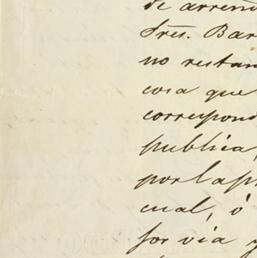 de arren
Sres. Bar
no restan
cosa que
correspond
publica,
por la p
cual, ó
por via y